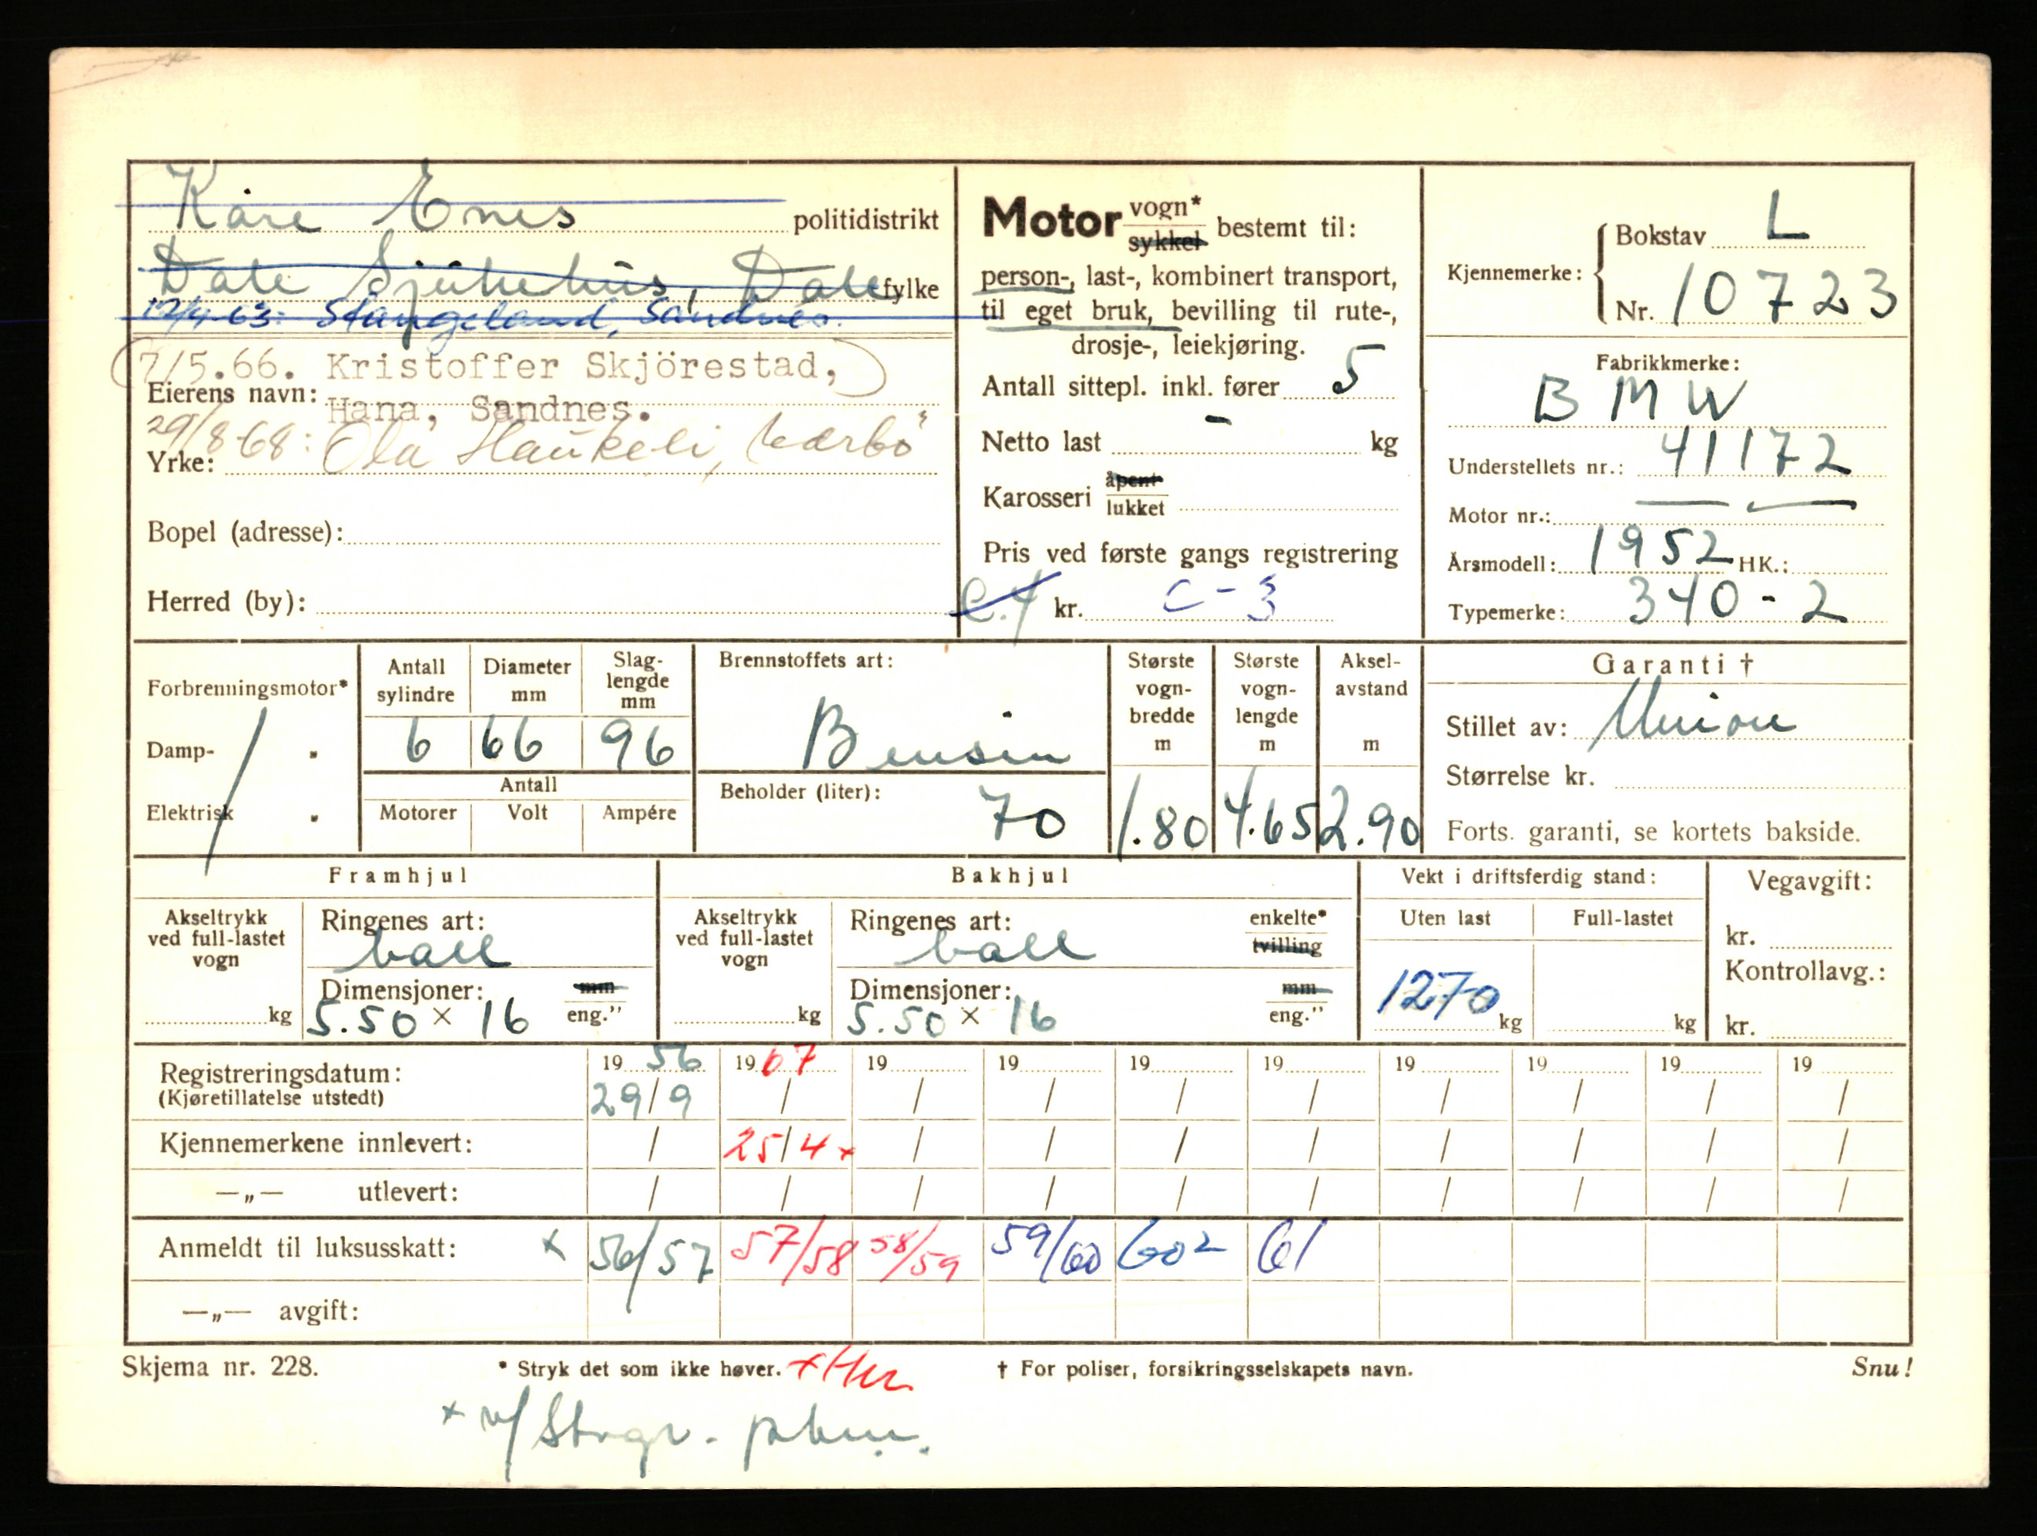 Kåre Enes politidistrikt
Dale Sjukehus, Dale fylke
12/4-63: Stangeland, Sandnes.
7/5.66. Kristoffer Skjörestad,
Eierens navn: Hana, Sandnes.
29/8-68: Ola Haukeli, Værbø
Yrke:
Bopel (adresse):
Herred (by):
Motor vogn* sykkel bestemt til:
person-, last-, kombinert transport,
til eget bruk, bevilling til rute-,
drosje-, leiekjøring.
Antall sittepl. inkl. fører 5
Netto last - kg
Karosseri åpent lukket
Pris ved første gangs registrering
C.4 kr. C-3
Kjennemerke: Bokstav L
Nr. 10723
Fabrikkmerke:
BMW
Understellets nr.: 41172
Motor nr.: — —
Årsmodell: 1952 HK.:
Typemerke: 340-2
Forbrenningsmotor*
Damp- "
Elektrisk "
Antall sylindre 6
Diameter mm 66
Slag-lengde mm 96
Antall
Motorer Volt Ampére
Brennstoffets art:
Bensin
Beholder (liter): 70
Største vogn-bredde m 1.80
Største vogn-lengde m 4.65
Aksel-avstand m 2.90
Garanti †
Stillet av: Union
Størrelse kr.
Forts. garanti, se kortets bakside.
Framhjul
Akseltrykk ved full-lastet vogn kg
Ringenes art: ball
Dimensjoner: mm
5.50 × 16 eng."
Bakhjul
Akseltrykk ved full-lastet vogn kg
Ringenes art: ball enkelte* tvilling
Dimensjoner: mm
5.50 × 16 eng."
Vekt i driftsferdig stand:
Uten last Full-lastet
1270 kg kg
Vegavgift:
kr.
Kontrollavg.:
kr.
Registreringsdatum: 19 56 19 67 19 19 19 19 19 19 19 19
(Kjøretillatelse utstedt) 29/9 / / / / / / / / /
Kjennemerkene innlevert: / 25/4 × / / / / / / / /
—„— utlevert: / / / / / / / / / /
Anmeldt til luksusskatt: × 56/57 57/58 58/59 59/60 602 61
—„— avgift:
Skjema nr. 228. * Stryk det som ikke høver. † For poliser, forsikringsselskapets navn. Snu!